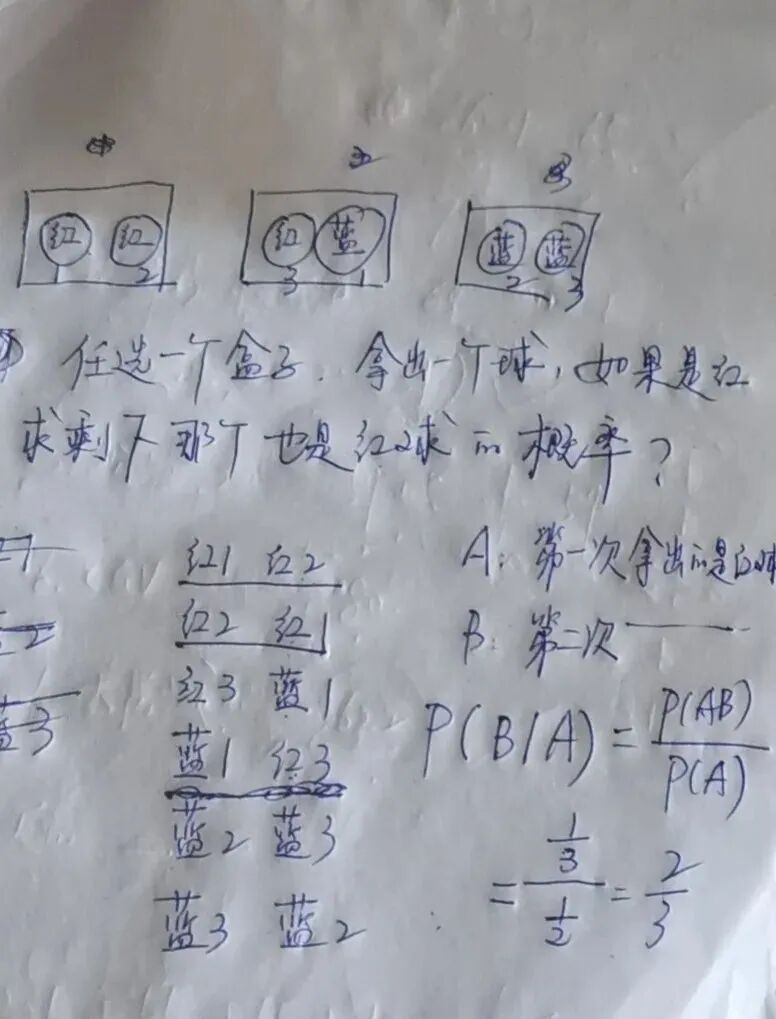 红1 红2 红3 蓝1 蓝2 蓝3
任选一个盒子. 拿出一个球, 如果是红
求剩下那个也是红球的概率?
红1 红2
红2 红1
红3 蓝1
蓝1 红3
蓝2 蓝3
蓝3 蓝2
A: 第一次拿出的是红球
B: 第二次——
P(B|A) = P(AB)/P(A)
= (1/3)/(1/2) = 2/3